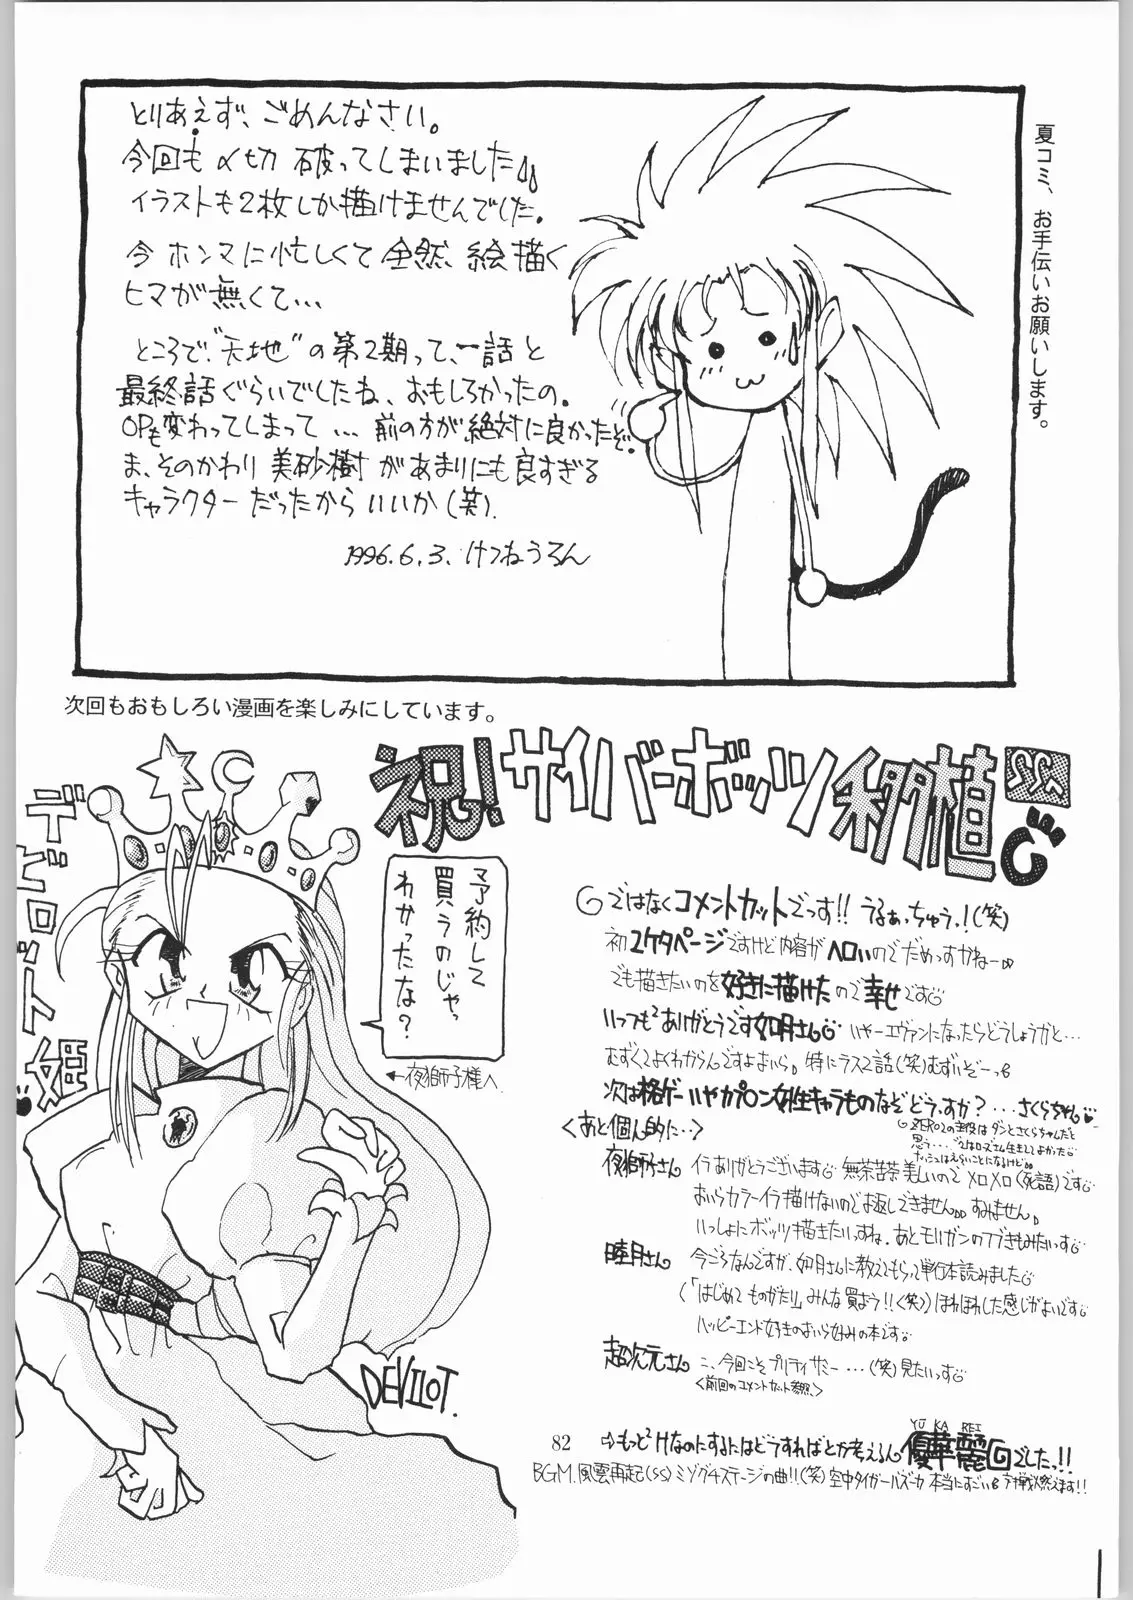 とりあえず、ごめんなさい。
今回も〆切 破ってしまいました
イラストも2枚しか描けませんでした。
今 ホンマに忙しくて 全然、絵描く
ヒマが無くて…
ところで、“天地”の第2期って、一話と
最終話ぐらいでしたね、おもしろかったの。
OPも変わってしまって … 前の方が絶対に良かったぞ。
ま、そのかわり 美砂樹があまりにも良すぎる
キャラクターだったからいいか(笑).
1996.6.3. けつねうろん
夏コミ、お手伝いお願いします。
次回もおもしろい漫画を楽しみにしています。
祝!サイバーボッツ移植 SS
デビロット姫
予約して
買うのじゃっ
わかったな?
←夜獅子様へ
DEVILOT.
ではなくコメントカットでっす!! うるぁっちゅう!(笑)
初2ケタページですけど内容がヘロいのでだめっすかねー
でも描きたいのを好きに描けたので幸せです
いっつもありがとうです如月さん いやーエヴァンになったらどうしようかと…
むずくてよくわからんですよまいら。特にラス2話(笑)むずいぞーっ
次は格ゲーいやカプコン女性キャラものなぞどうすか?…さくらちゃん
ZERO2の主役はダンとさくらちゃんだと
思う…
<あと個人的に…>
夜獅子さん イラありがとうございます 無茶苦茶美しいのでメロメロ(死語)です
おいらカラーイラ描けないのでお返しできません すみません。
いっしょにボッツ描きたいすね。あとモリガンの
睦月さん 今ごろなんですが、如月さんに教えてもらって単行本読みました
(「はじめてものがたり」みんな買よう!!(笑))ほわほわした感じがよいです
ハッピーエンド好きのおいら好みの本です
超次元さん こ、今回こそプリティサミー…(笑)見たいっす
<前回のコメントカット参照>
82
⇨もっとHなのにするにはどうすればとか考えるん
YU KA REI
優華麗 でしたっ!!
BGM.風雲再起(SS)ミヅグチステージの曲!!(笑)空中タイガーバズーカ 本当にすごい 対戦燃えます!!